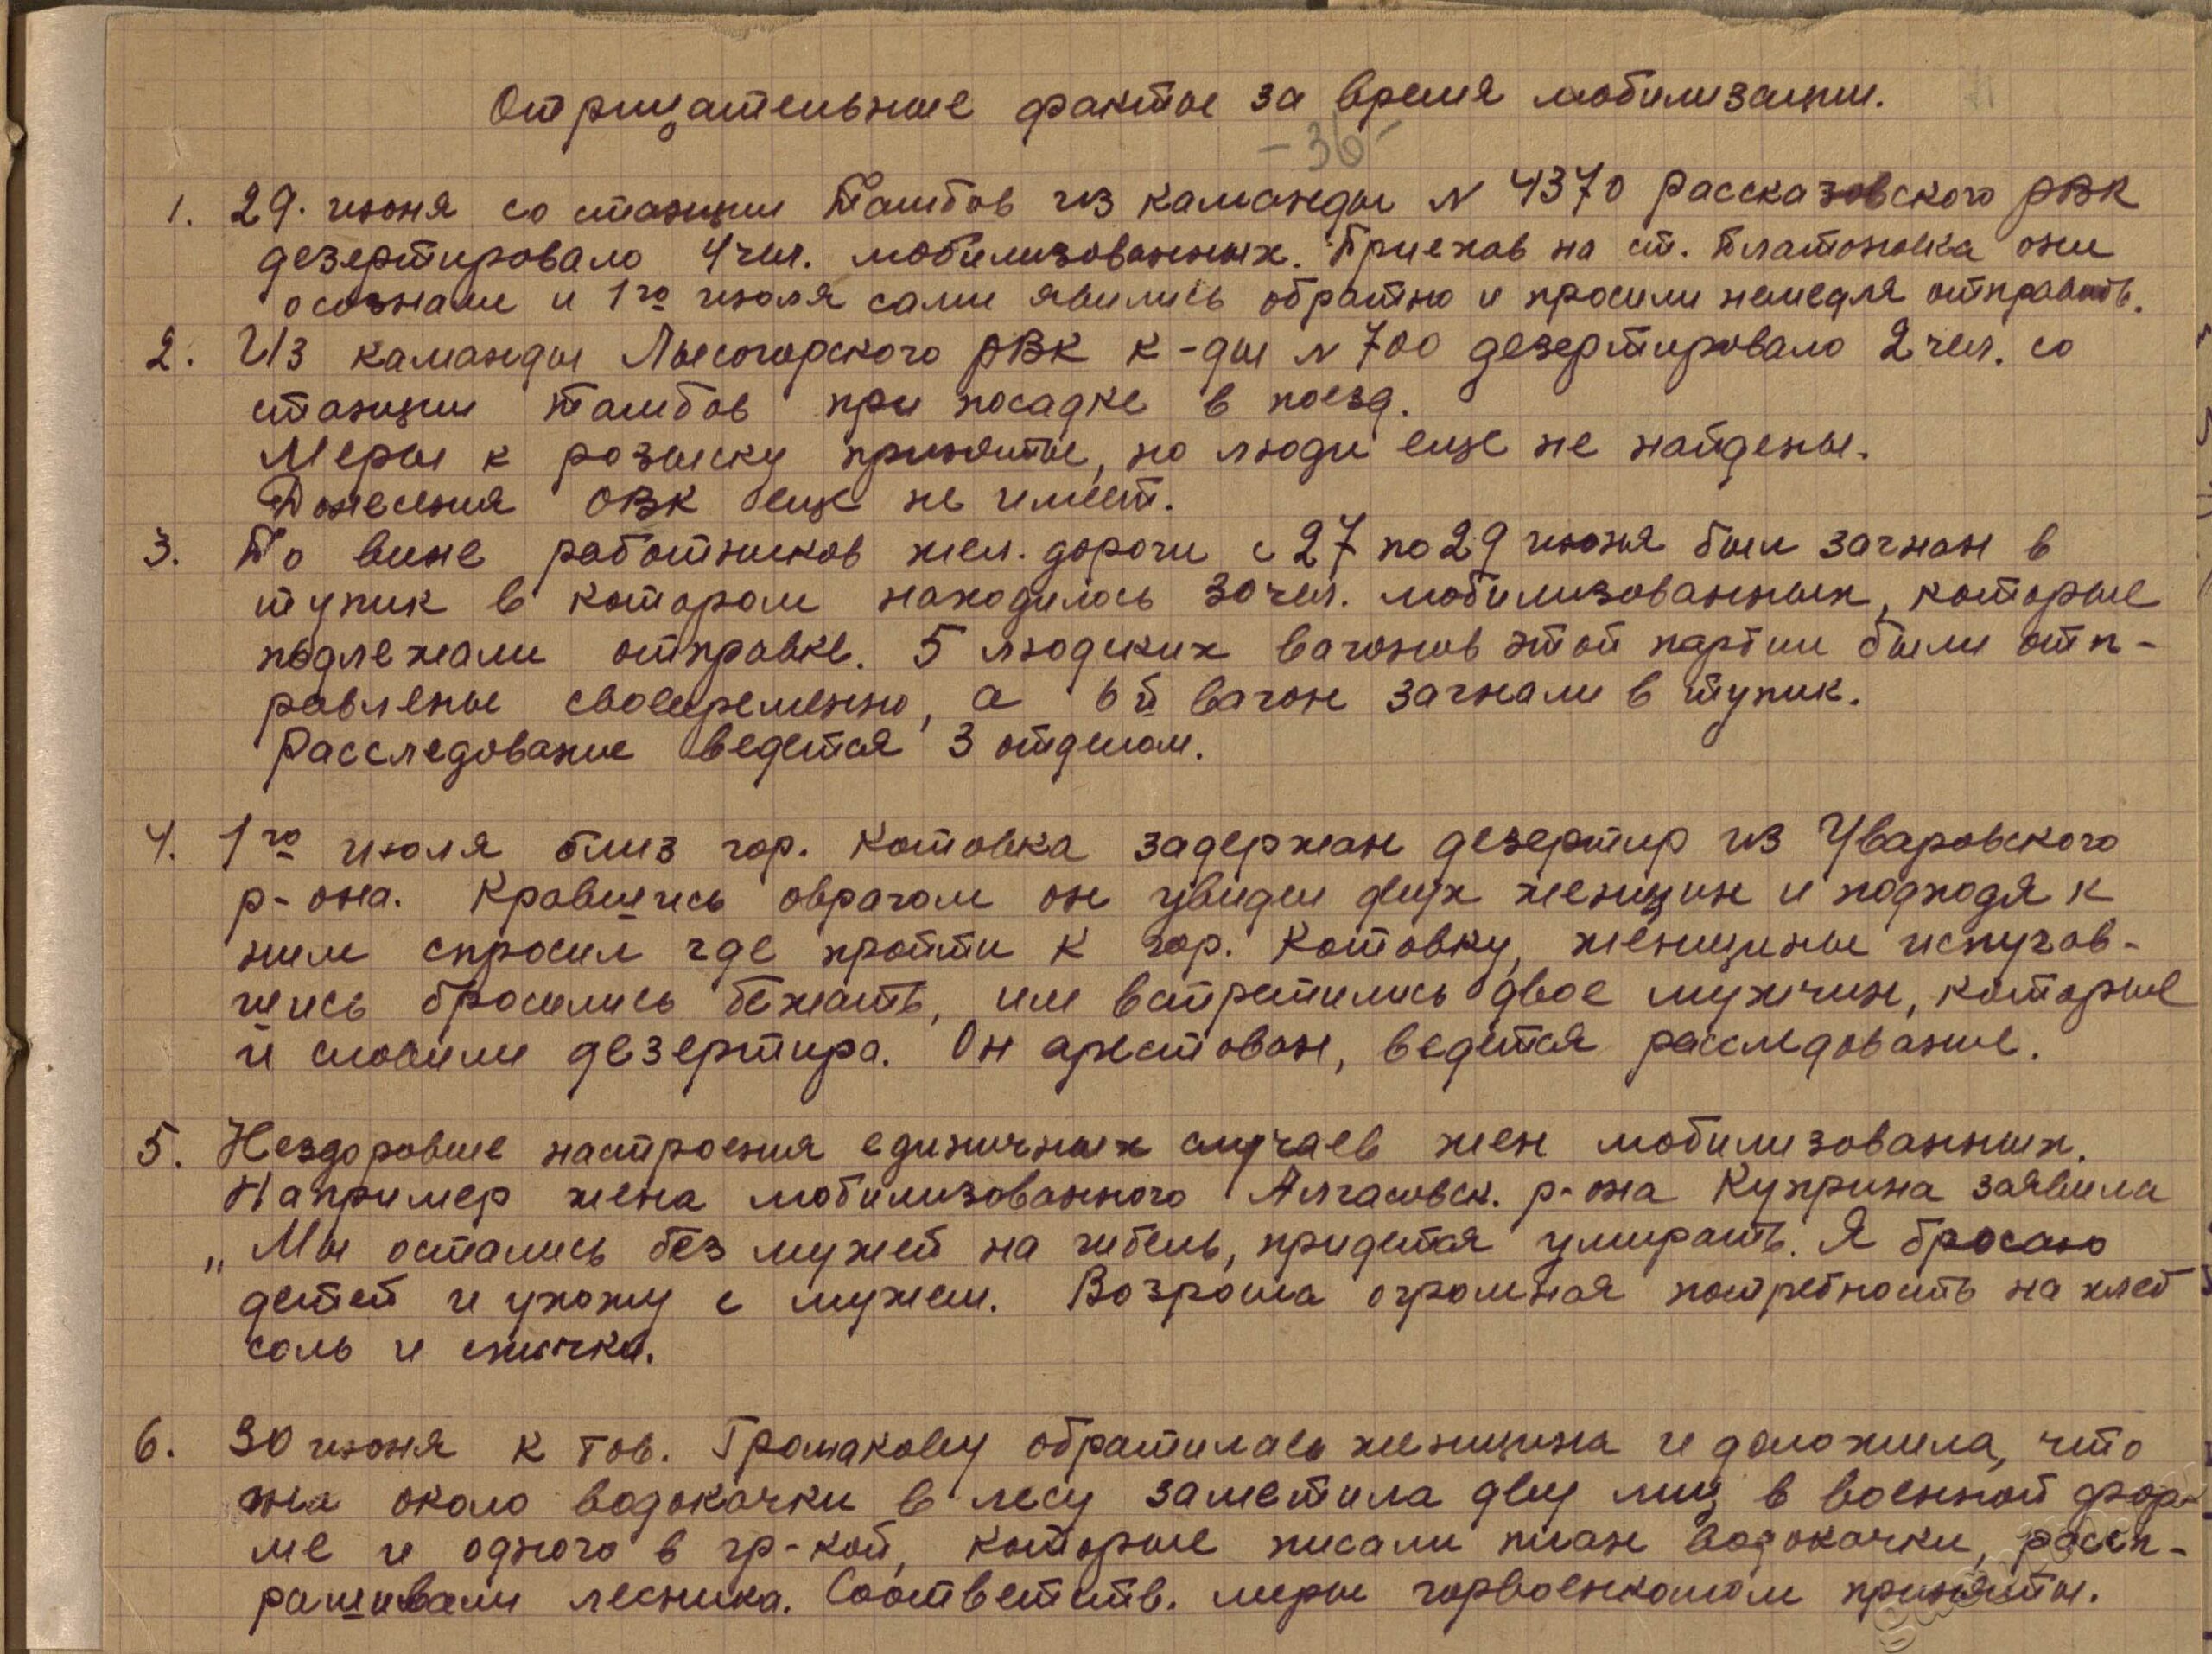 Отрицательные факты за время мобилизации.
-36-
1. 29. июня со станции Тамбов из каманды N 4370 Рассказовского РВК
дезертировало 4 чел. мобилизованных. Приехав на ст. Платоновка они
осознали и 1го июля сами явились обратно и просили немедля отправить.
2. Из каманды Лысогорского РВК к-ды N 700 дезертировало 2 чел. со
станции Тамбов при посадке в поезд.
Меры к розыску приняты, но люди еще не найдены.
Донесения ОВК еще не имеет.
3. По вине работников жел. дороги с 27 по 29 июня был загнан в
тупик в котором находилось 30 чел. мобилизованных, которые
подлежали отправке. 5 людских вагонов этой партии были отп-
равлены своевременно, а 6й вагон загнали в тупик.
Расследование ведется 3 отделом.
4. 1го июля близ гор. Котовка задержан дезертир из Уваровского
р-она. Кравшись оврагом он увидел двух женщин и подходя к
ним спросил где пройти к гор. Котовку, женщины испугав-
шись бросились бежать, им встретились двое мужчин, которые
и словили дезертира. Он арестован, ведется расследование.
5. Нездоровые настроения единичных случаев жен мобилизованных.
Например жена мобилизованного Алгасовск. р-она Куприна заявила
„Мы остались без мужей на гибель, придется умирать. Я бросаю
детей и ухожу с мужем. Возросла огромная потребность на хлеб
соль и спички.
6. 30 июня к тов. Громакову обратилась женщина и доложила, что
она около водокачки в лесу заметила дву лиц в военной фор-
ме и одного в гр-кой, которые писали план водокачки, расп-
рашивали лесника. Соответств. меры горвоенкомом приняты.